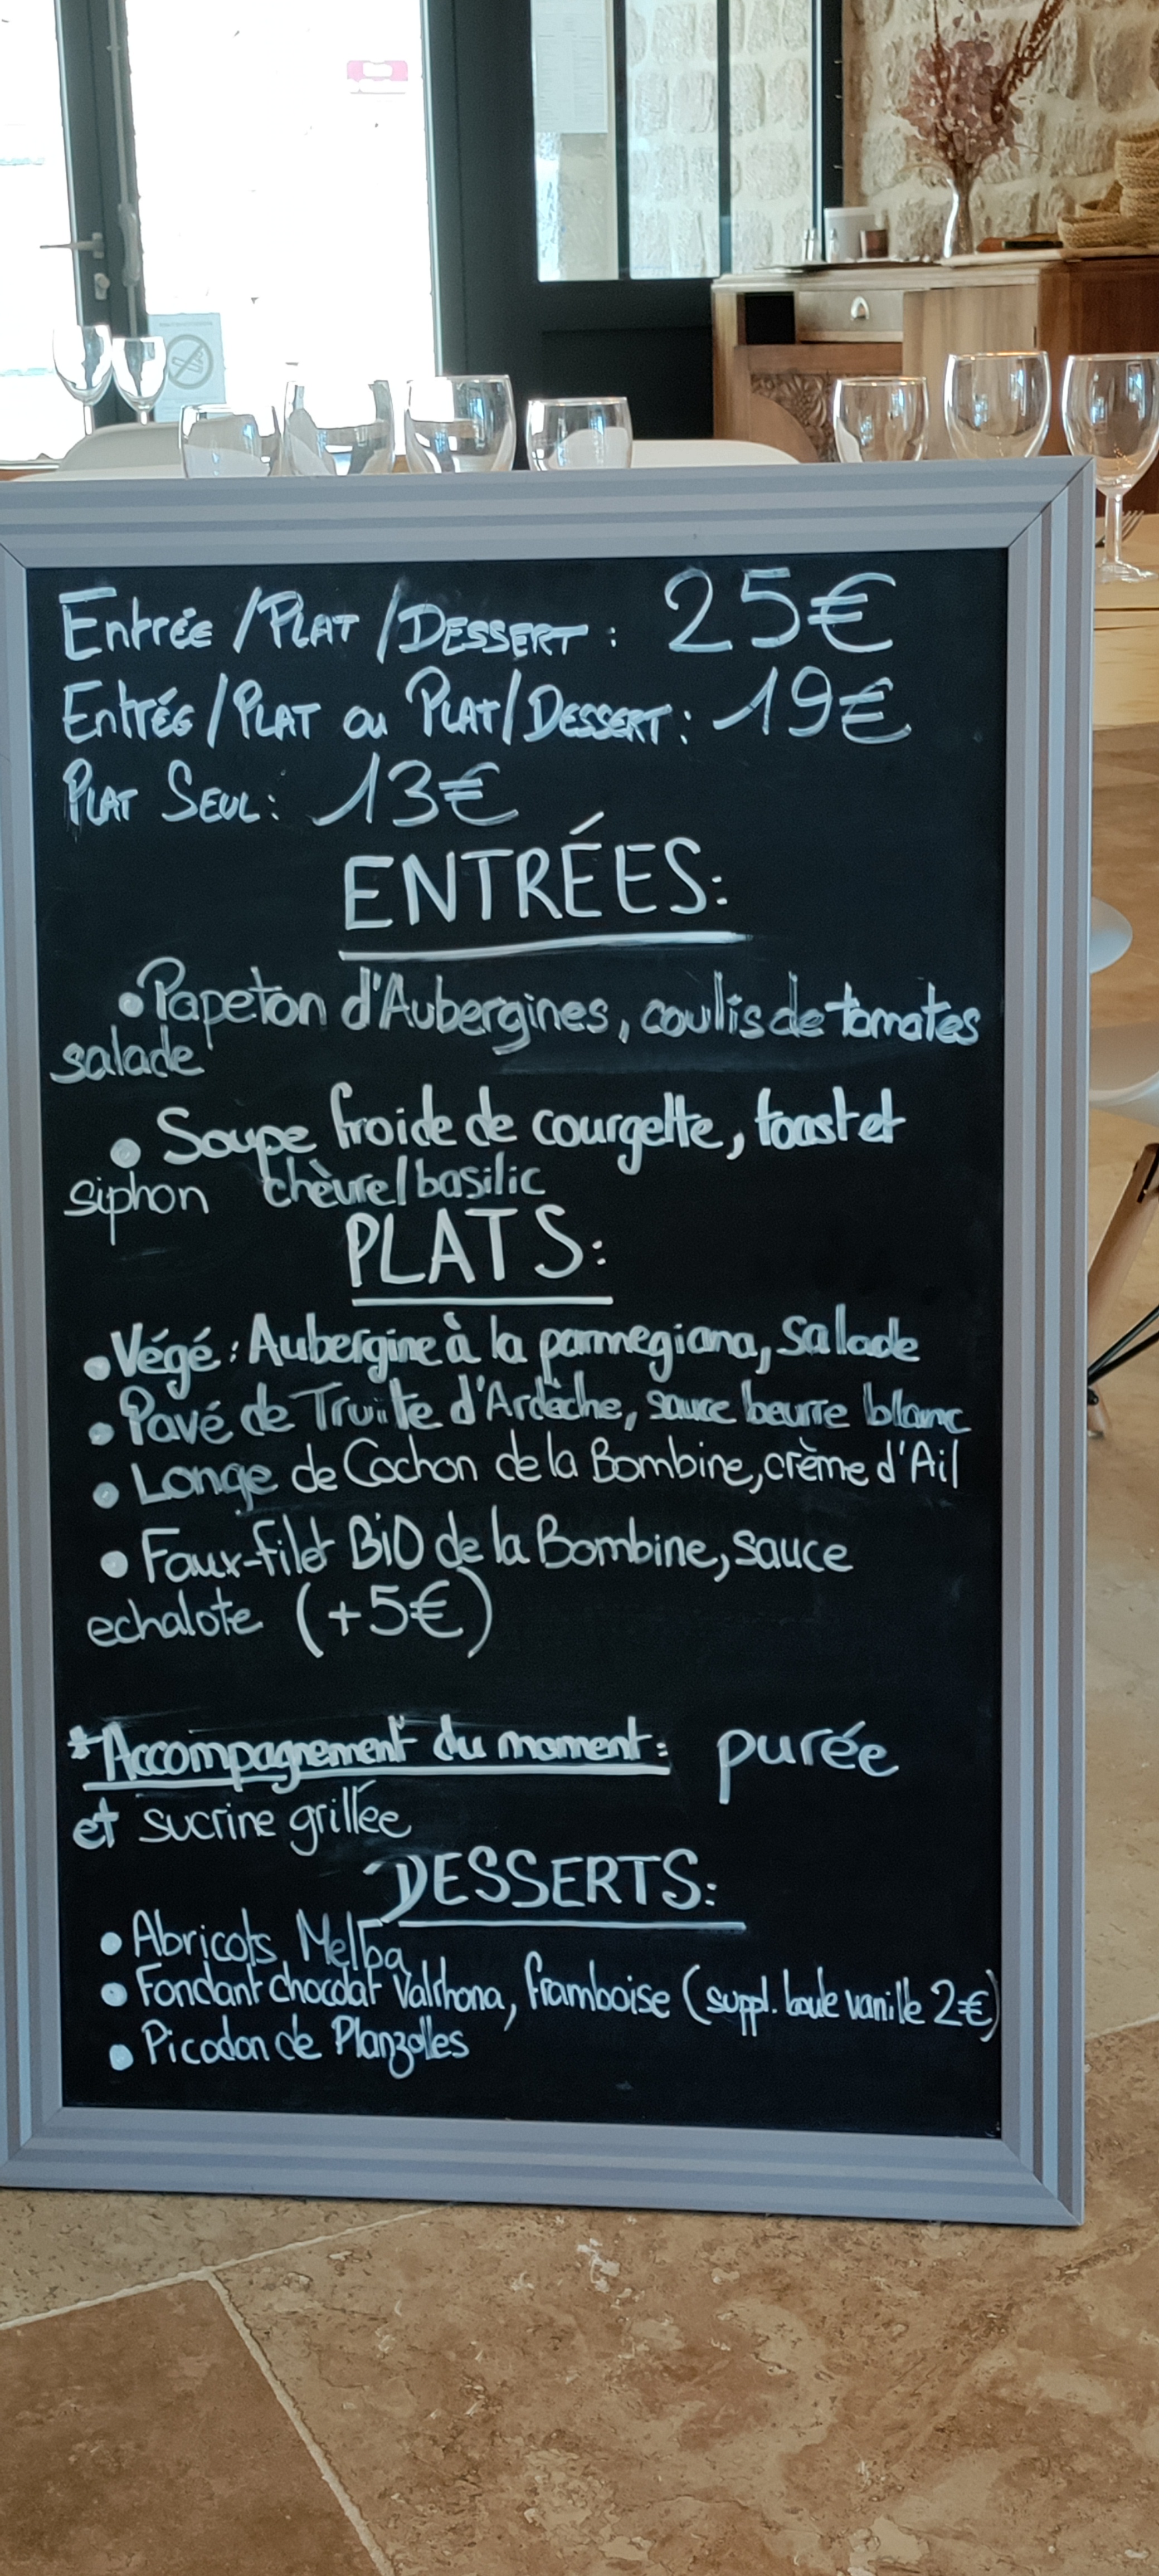 Entrée /PLAT /DESSERT : 25€
Entrée/PLAT ou PLAT/DESSERT: 19€
PLAT SEUL: 13€
ENTRÉES:
• Papeton d'Aubergines, coulis de tomates
salade
• Soupe froide de courgette, toast et
siphon chèvre/basilic
PLATS:
• Végé: Aubergine à la parmegiana, salade
• Pavé de Truite d'Ardèche, sauce beurre blanc
• Longe de Cochon de la Bombine, crème d'Ail
• Faux-filet BiO de la Bombine, sauce
echalote (+5€)
*Accompagnement du moment: purée
et sucrine grillée
DESSERTS:
• Abricots Melba
• Fondant chocolat Valrhona, framboise (suppl. boule vanille 2€)
• Picodon de Planzolles